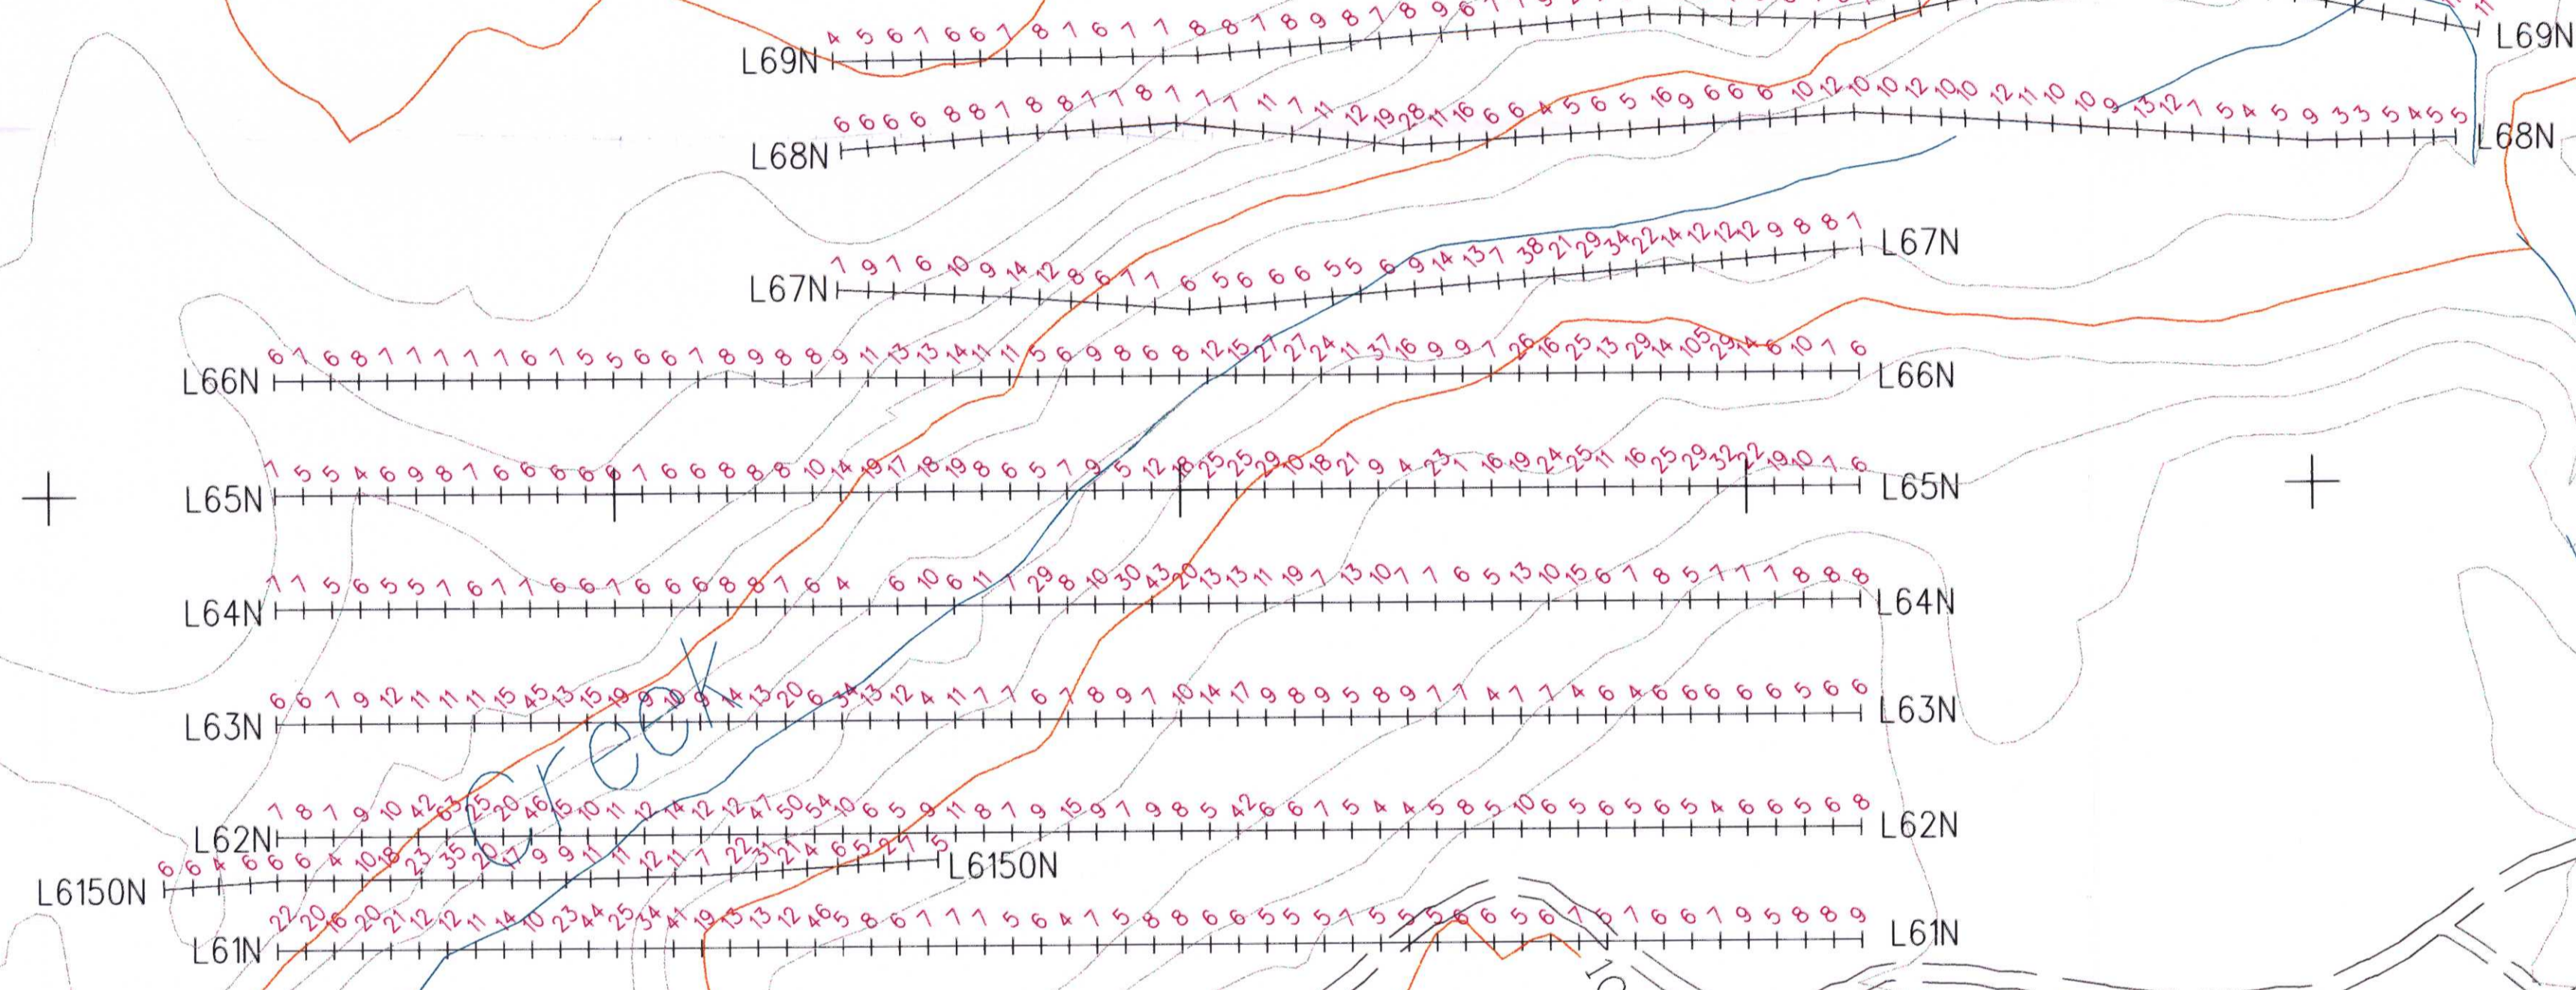 L69N 4 5 6 7 6 6 7 8 7 6 7 7 8 8 7 8 9 8 7 8 9 6 L69N
6 6 6 6 8 8 7 8 8 7 7 8 7 7 7 11 7 11 12 19 28 11 16 6 6 4 5 6 5 16 9 6 6 6 10 12 10 10 12 10 10 12 11 10 10 9 13 12 7 5 4 5 9 3 3 5 4 5 5
L68N L68N
7 9 7 6 10 9 14 12 8 6 7 7 6 5 6 6 6 5 5 6 9 14 13 7 38 21 29 34 22 14 12 12 12 9 8 8 7
L67N L67N
6 7 6 8 7 7 7 7 7 6 7 5 5 6 6 7 8 9 8 8 9 11 13 13 14 11 11 5 6 9 8 6 8 12 15 27 27 24 11 37 16 9 9 7 26 16 25 13 29 14 105 29 14 6 10 7 6
L66N L66N
7 5 5 4 6 9 8 7 6 6 6 6 6 7 6 6 8 8 8 10 14 19 17 18 19 8 6 5 7 9 5 12 18 25 25 29 10 18 21 9 4 23 1 16 19 24 25 11 16 25 29 32 22 19 10 7 6
L65N L65N
7 7 5 6 5 5 7 6 7 7 6 6 7 6 6 6 8 8 7 6 4 6 10 6 11 7 29 8 10 30 43 20 13 13 11 19 7 13 10 7 7 6 5 13 10 15 6 7 8 5 7 7 7 8 8 8
L64N L64N
6 6 7 9 12 11 11 11 15 45 13 15 19 9 10 9 14 13 20 6 34 13 12 4 11 7 7 6 7 8 9 7 10 14 17 9 8 9 5 8 9 7 7 4 7 7 4 6 4 6 6 6 6 6 5 6 6
L63N L63N
Creek
7 8 7 9 10 42 63 25 20 46 15 10 11 12 14 12 12 47 50 54 10 6 5 9 11 8 7 9 15 9 7 9 8 5 42 6 6 7 5 4 4 5 8 5 10 6 5 6 5 6 5 4 6 6 5 6 8
L62N L62N
6 6 4 6 6 6 4 10 18 23 35 20 17 9 9 11 11 12 11 7 22 31 21 4 6 5 2 7 5
L6150N L6150N
22 20 16 20 21 12 12 11 14 10 23 44 25 34 41 19 13 13 12 46 5 8 6 7 7 7 5 6 4 7 5 8 8 6 6 5 5 5 7 5 5 5 6 6 5 6 7 5 7 6 6 7 9 5 8 8 9
L61N L61N